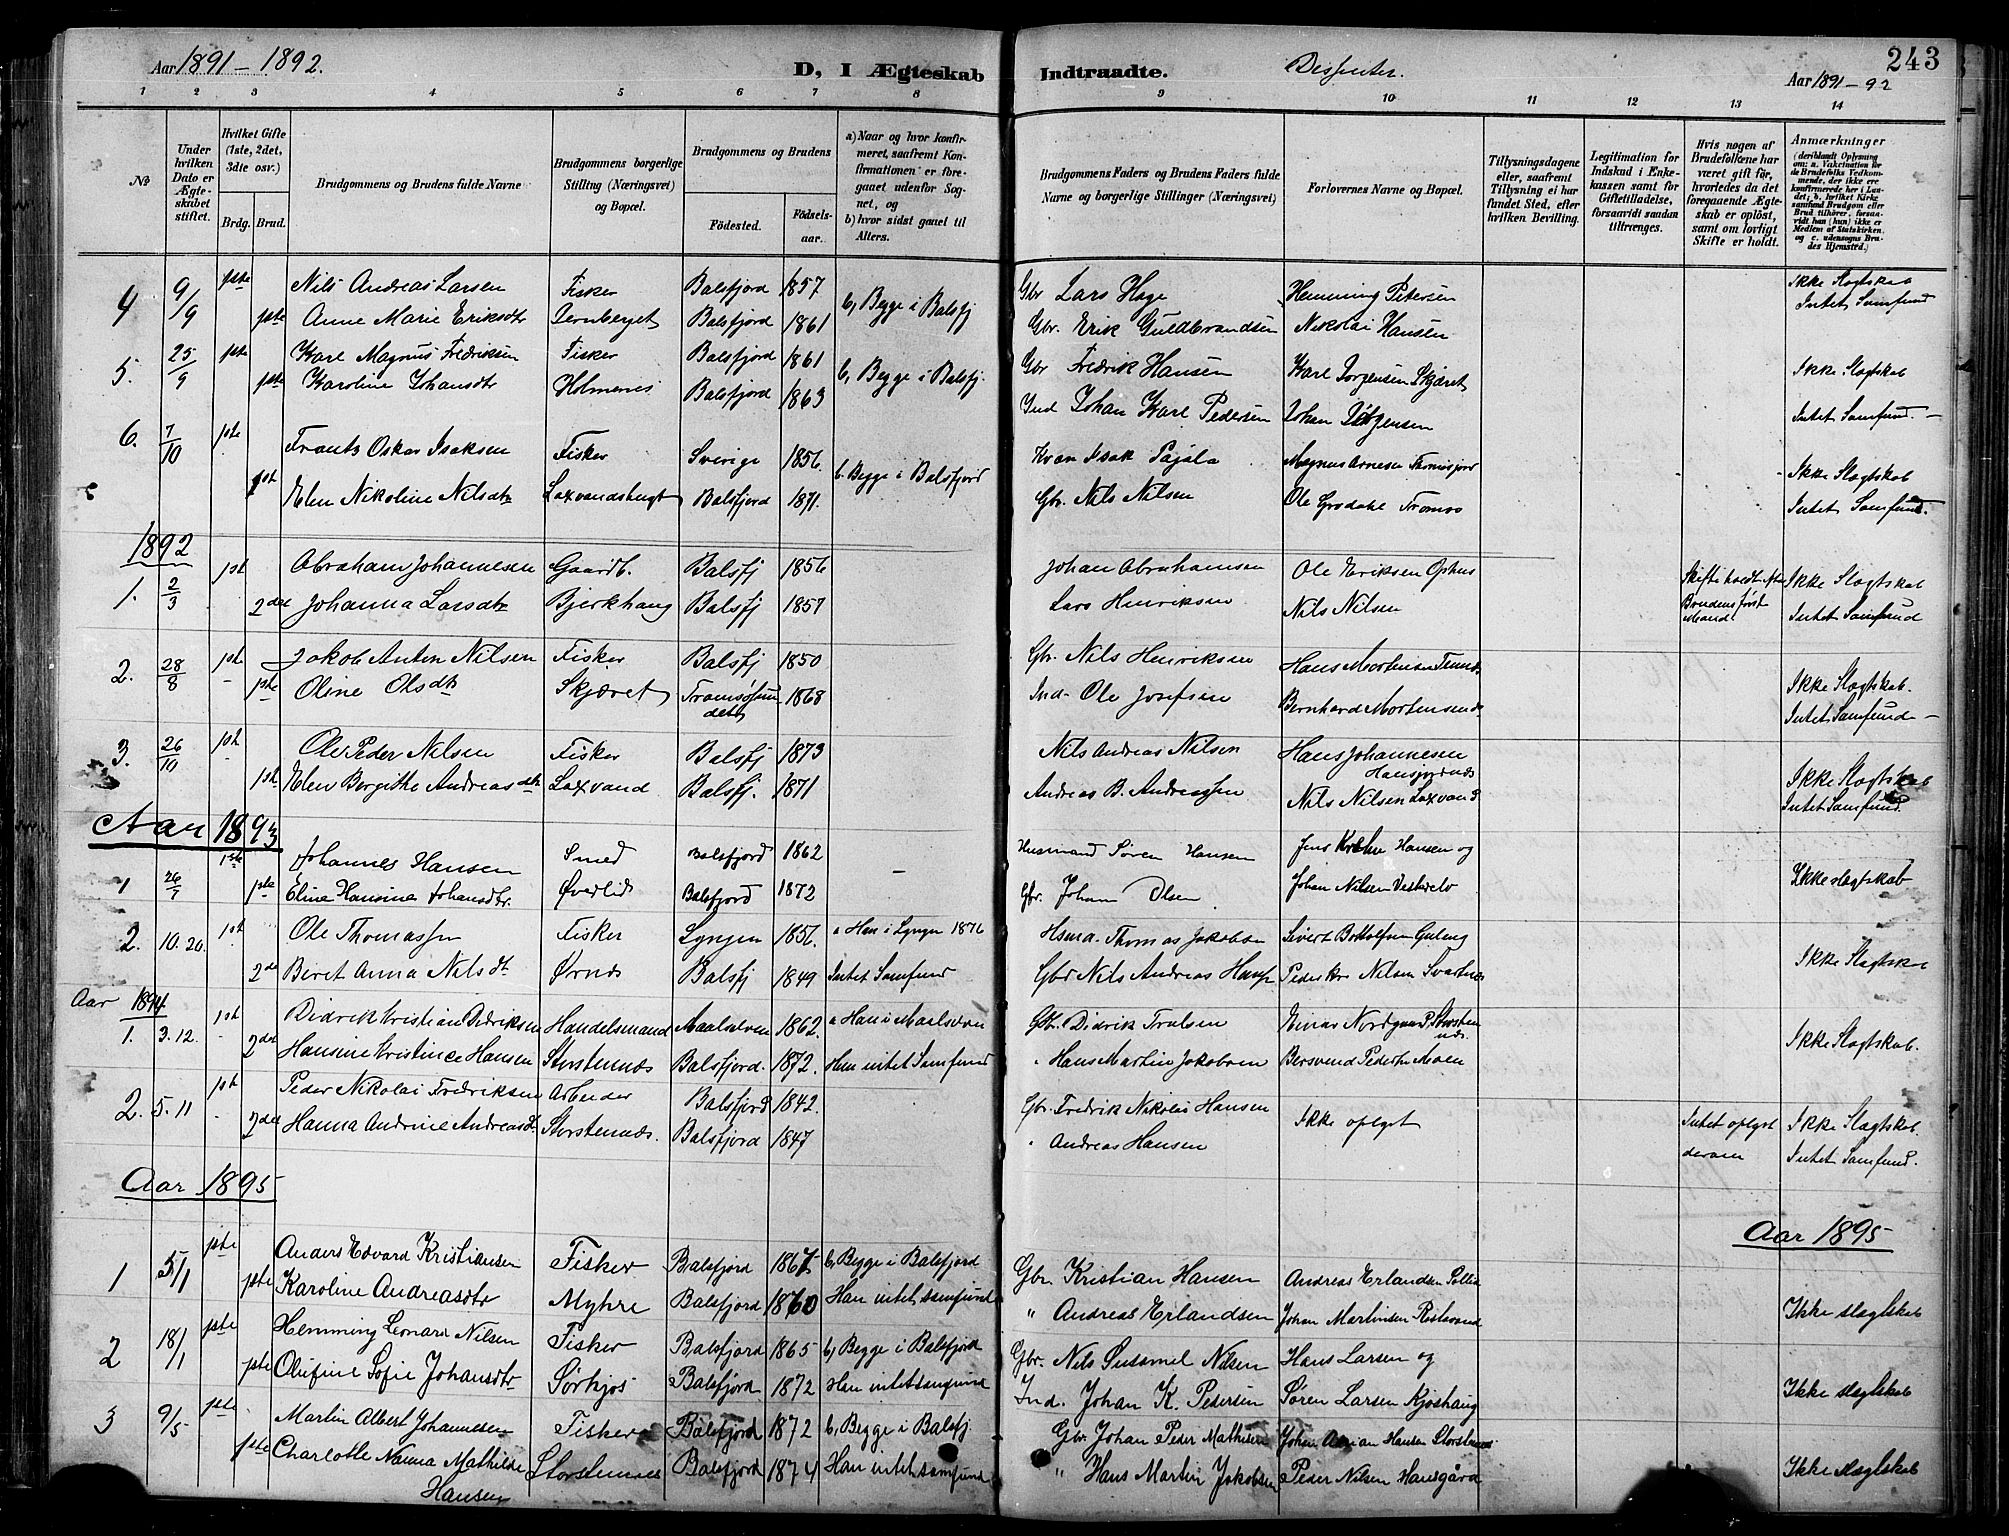 Aar 1891 – 1892.
D, I Ægteskab Indtraadte.
Dissenter.
243
Aar 1891 – 92
1 2 3 4 5 6 7 8 9 10 11 12 13 14
No
Under hvilken Dato er Ægteskabet stiftet.
Hvilket Gifte (1ste, 2det, 3die osv.)
Brdg. Brud.
Brudgommens og Brudens fulde Navne
Brudgommens borgerlige Stilling (Næringsvei) og Bopæl.
Brudgommens og Brudens
Fødested. Fødselsaar.
a) Naar og hvor konfirmeret, saafremt Konfirmationen er foregaaet udenfor Sognet, og
b) hvor sidst gaaet til Alters.
Brudgommens Faders og Brudens Faders fulde Navne og borgerlige Stillinger (Næringsvei)
Forlovernes Navne og Bopæl.
Tillysningsdagene eller, saafremt Tillysning ei har fundet Sted, efter hvilken Bevilling.
Legitimation for Indskud i Enkekassen samt for Giftetilladelse, forsaavidt saadan tiltrænges.
Hvis nogen af Brudefolkene har været gift før, hvorledes da det foregaaende Ægteskab er opløst, samt om lovligt Skifte er holdt.
Anmærkninger
(deriblandt Oplysning om: a. Vakcination for Brudefolks Vedkommende, der ikke ere konfirmerede her i Landet; b. hvilket Kirkesamfund Brudgom eller Brud tilhører, forsaavidt han (hun) ikke er Medlem af Statskirken, og c. udensogns Brudes Hjemsted.)
4 9/9 1ste Nils Andreas Larsen Fisker Balsfjord 1857 b, Begge i Balsfj Gbr Lars Hage Hemming Petersen Ikke Slægtskab
1ste Anne Marie Eriksdtr Jernberget Balsfjord 1861 Gbr. Erik Guldbrandsen Nikolai Hansen Intet Samfund
5. 25/9 1ste Karl Magnus Fredriksen Fisker Balsfjord 1861 b, Begge i Balsfj. Gbr Fredrik Hansen Karl Jørgensen Skjæret Ikke Slægtskab
1ste Karoline Johansdtr Holmenes Balsfjord 1863 Ind Johan Karl Pedersen Johan Jørgensen Intet Samfund. –
6. 7/10 1ste Frants Oskar Isaksen Fisker Sverige 1856. b. Begge i Balsfjord Kvæn Isak Pajala Magnus Arnesen Ikke Slægtskab
1st Elen Nikoline Nilsdtr Laxvandsbugt Balsfjord 1871. Gbr. Nils Nilsen Ole Grødahl Tromsø Intet Samfund.
1892
1. 2/3 1st Abraham Johannesen Gaardb. Balsfj 1856 Johan Abrahamsen Ole Eriksen Ophus Skifte holdt efter Ikke Slægtskab
2det Johanna Larsdtr Bjerkhaug Balsfj 1857 Lars Henriksen Nils Nilsen Brudens først Mand Intet Samfund
2. 28/8 1st Jakob Anton Nilsen Fisker Balsfj 1850 Gbr. Nils Henriksen Hans Mortensen Ikke Slægtskab.
1ste Oline Olsdtr Skjæret Tromsøsundet 1868 Ind. Ole Josefsen Bernhard Mortensen Intet Samfund –
3. 26/10 1st Ole Peder Nilsen Fisker Balsfj 1873 Nils Andreas Nilsen Hans Johannesen Ikke Slægtskab
1st Elen Bergithe Andreasdtr Laxvand Balsfj. 1871 Andreas B. Andreassen Nils Nilsen Laxvand Intet Samfund
Aar 1893
1 26/7 1ste Johannes Hansen Smed Balsfjord 1862 – Husmand Søren Hansen Jens Hansen og Ikke slægtskab
1ste Eline Hansine Johansdtr. Øverlid Balsfjord 1872 Gbr. Johan Olsen Johan Nilsen
2. 10.20. 1st Ole Thomassen Fisker Lyngen 1856. a Han i Lyngen 1876 Hsma. Thomas Jakobsen Sivert Bottolfsen Ikke Slægtskab
2de Beret Anna Nilsdt Ørnes Balsfj 1849 Intet Samfund Gbr Nils Andreas Hans. Peder Kr Nilsen Svartnes
Aar 1894
1. 3.12. 1st Didrik Kristian Didriksen Handelsmand Maalselven 1862. a Han i Maalselven Gbr. Didrik Trulsen Einar Nordgaard Storstennes Ikke Slægtskab.
2det Hansine Kristince Hansen Storstennes Balsfjord. 1872. Han intet Samfund " Hans Martin Jakobsen Bersvend Peders. Moen
2. 5.11 1st Peder Nikolai Fredriksen Arbeider Balsfjord 1842. Gbr. Fredrik Nikolai Hansen Ikke oplyst Intet oplyst Ikke Slægtskab.
2det Hanna Andrine Andreasdt Storstennes. Balsfjord 1847 " Andreas Hansen derom Intet Samfund.
Aar 1895 Aar 1895
1 5/1 1ste Anders Edvard Kristiansen Fisker Balsfjord 1867 b, Begge i Balsfjord Gbr. Kristian Hansen Andreas Erlandsen
1ste Karoline Andreasdtr Myhre Balsfjord 1870 Han intet samfund " Andreas Erlandsen Johan Martinsen Ikke slægtskab
2 18/1 1ste Hemming Leonard Nilsen Fisker Balsfjord 1865 b, Begge i Balsfjord Gbr. Nils Susamel Nilsen Hans Larsen og
1ste Olufine Sofie Johansdtr Sørkjos Balsfjord 1872 Han intet samfund Ind. Johan K. Pedersen Søren Larsen Kjoshaug Ikke slægtskab
3 9/5 1ste Martin Albert Johannesen Fisker Balsfjord 1872 b, Begge i Balsfj. Gbr. Johan Peder Mathisen Johan Adrian Hansen Storstennes
1ste Charlotte Nanna Mathilde Hansen Storstennes Balsfjord 1874 Han intet samfund " Hans Martin Jakobsen Peder Nilsen Hansgård Ikke slægtskab